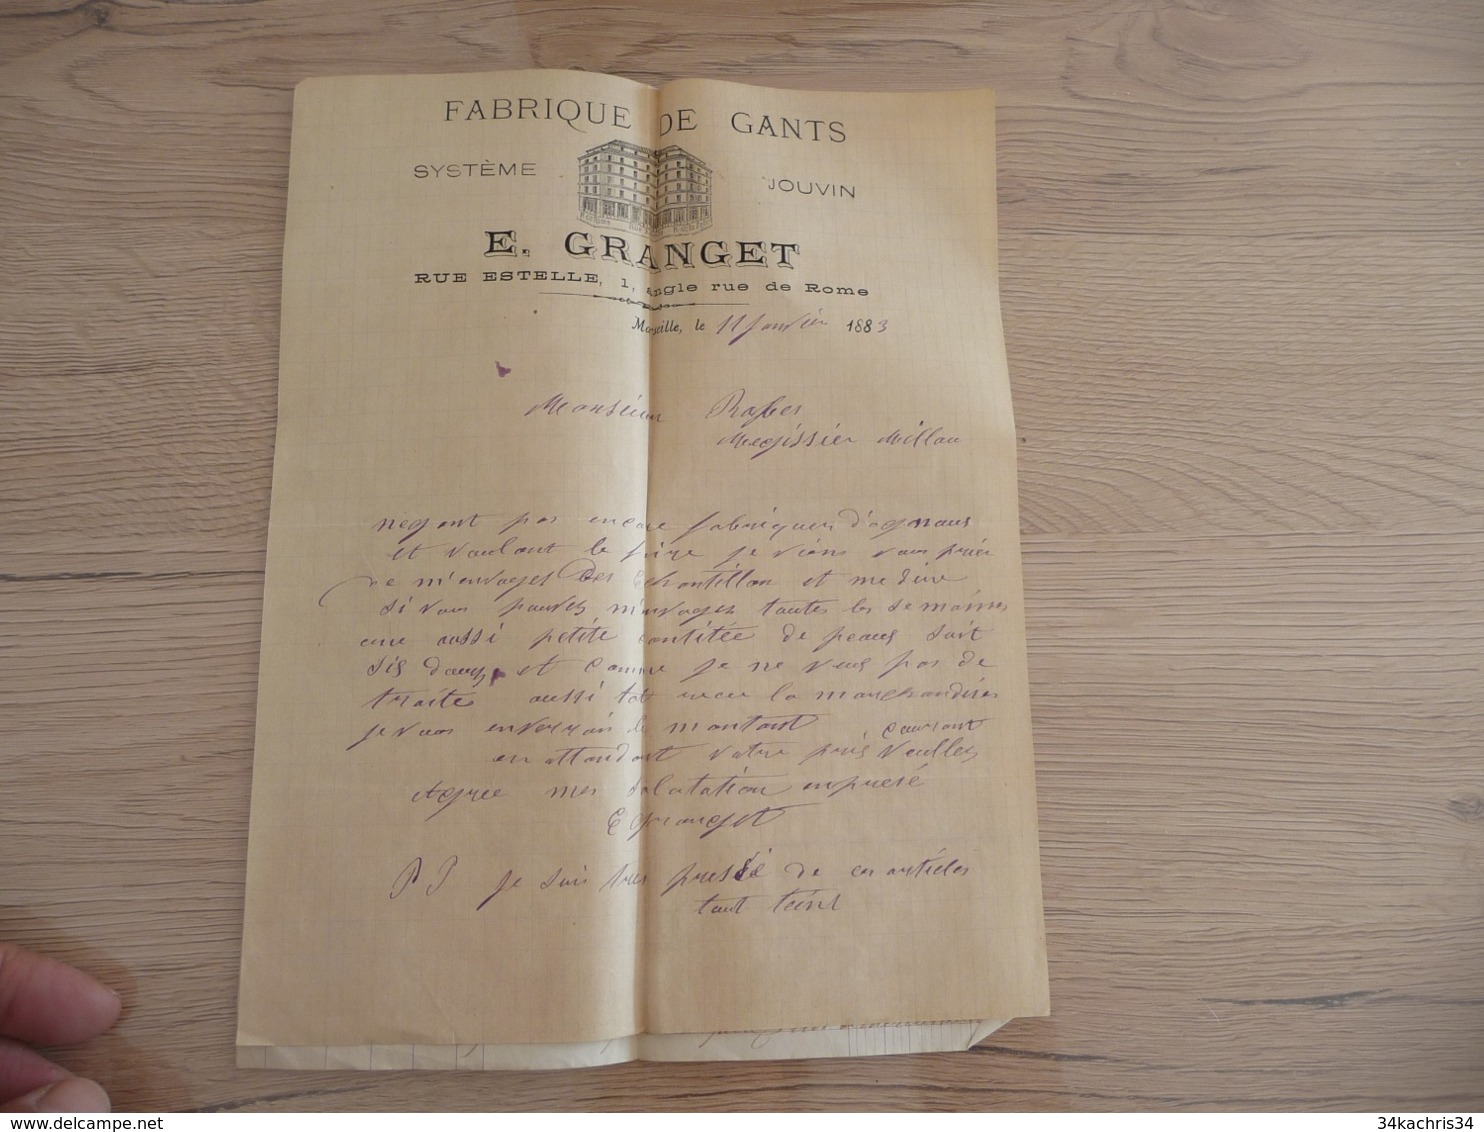 FABRIQUE DE GANTS
SYSTÈME JOUVIN
E. GRANGET
RUE ESTELLE, 1, angle rue de Rome
Marseille, le 11 Janvier 1883
Monsieur
Megissier Millau
neyant pas encore fabriquer d'agnaus
et voulant le faire je viens vous prier
de m'envoyes des Echantillon et me dire
si vous pouves m'envoyes toutes les semaines
une aussi petite cantitée de peaus soit
sis douz et comme je ne veus pas de
traites aussi tot recu la marchandises
je vous enverrais le montant
courant
en attendant votre pris veulles
Agree mes salutation empresé
E Granget
P S je suis tres pressé de ces articles
tout teint
34kachris34